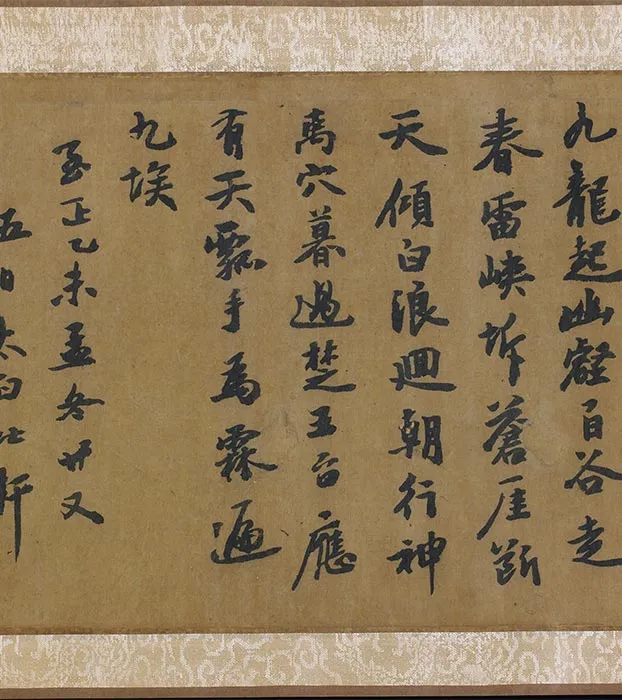 九龍起幽壑百谷走
春雷峽坼蒼厓斷
天傾白浪迴朝行神
禹穴暮過楚王臺應
有天瓢手為霖遍
九埃
至正乙未孟冬廿又
五日太白軒